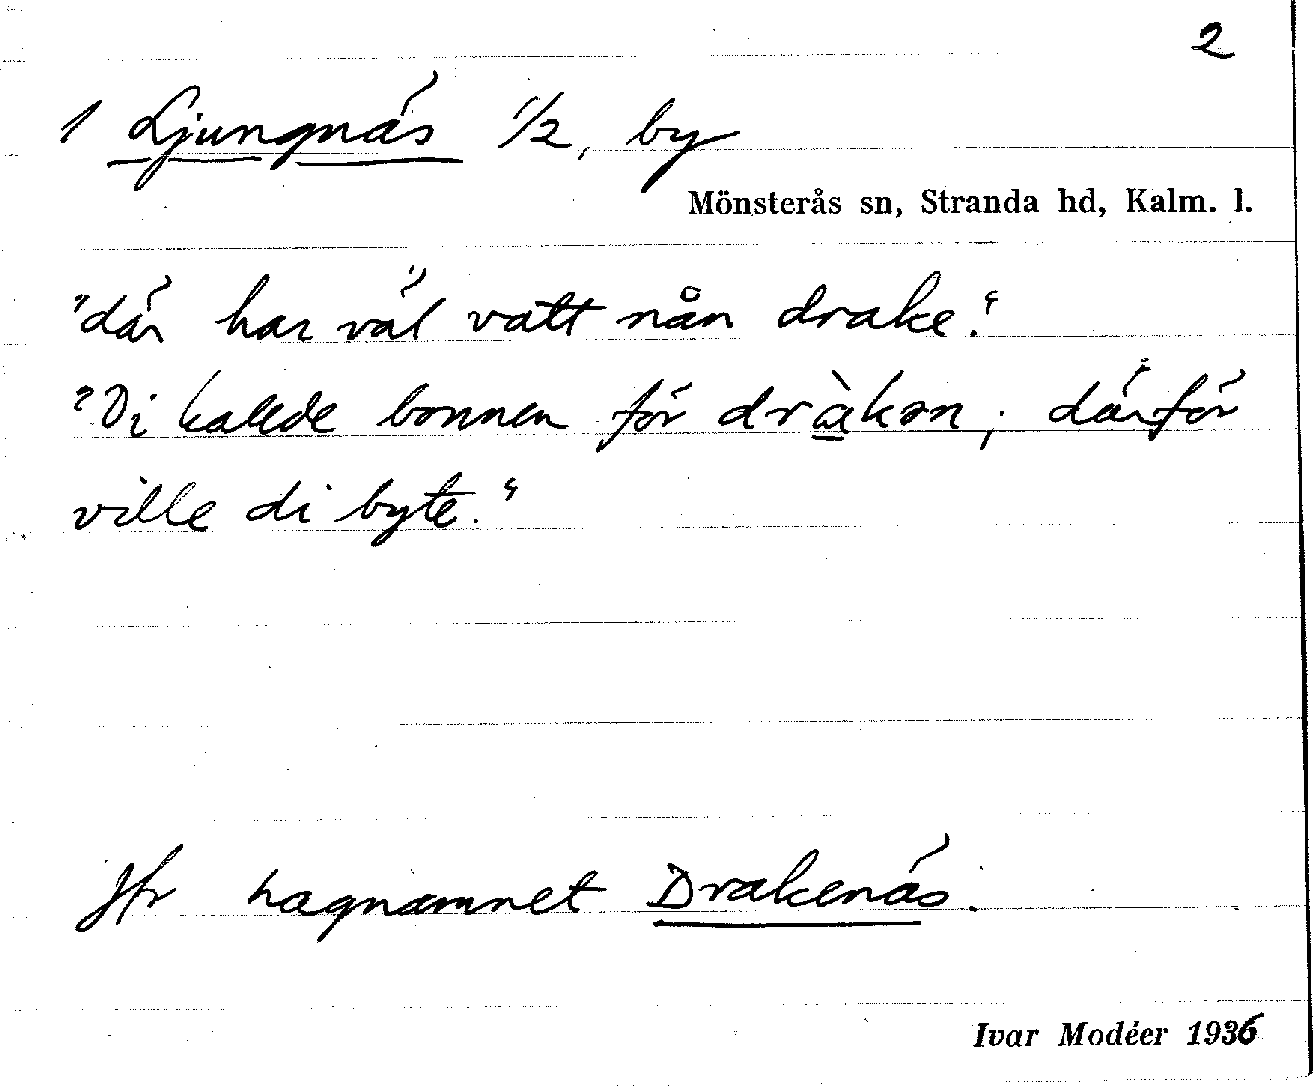 2
1 Ljungnäs 1/2, by
Mönsterås sn, Stranda hd, Kalm. l.
"där har väl vatt nån drake."
"Di kallde bonnen för dràkən; därför
ville di byte."
Jfr hagnamnet Drakenäs.
Ivar Modéer 1936